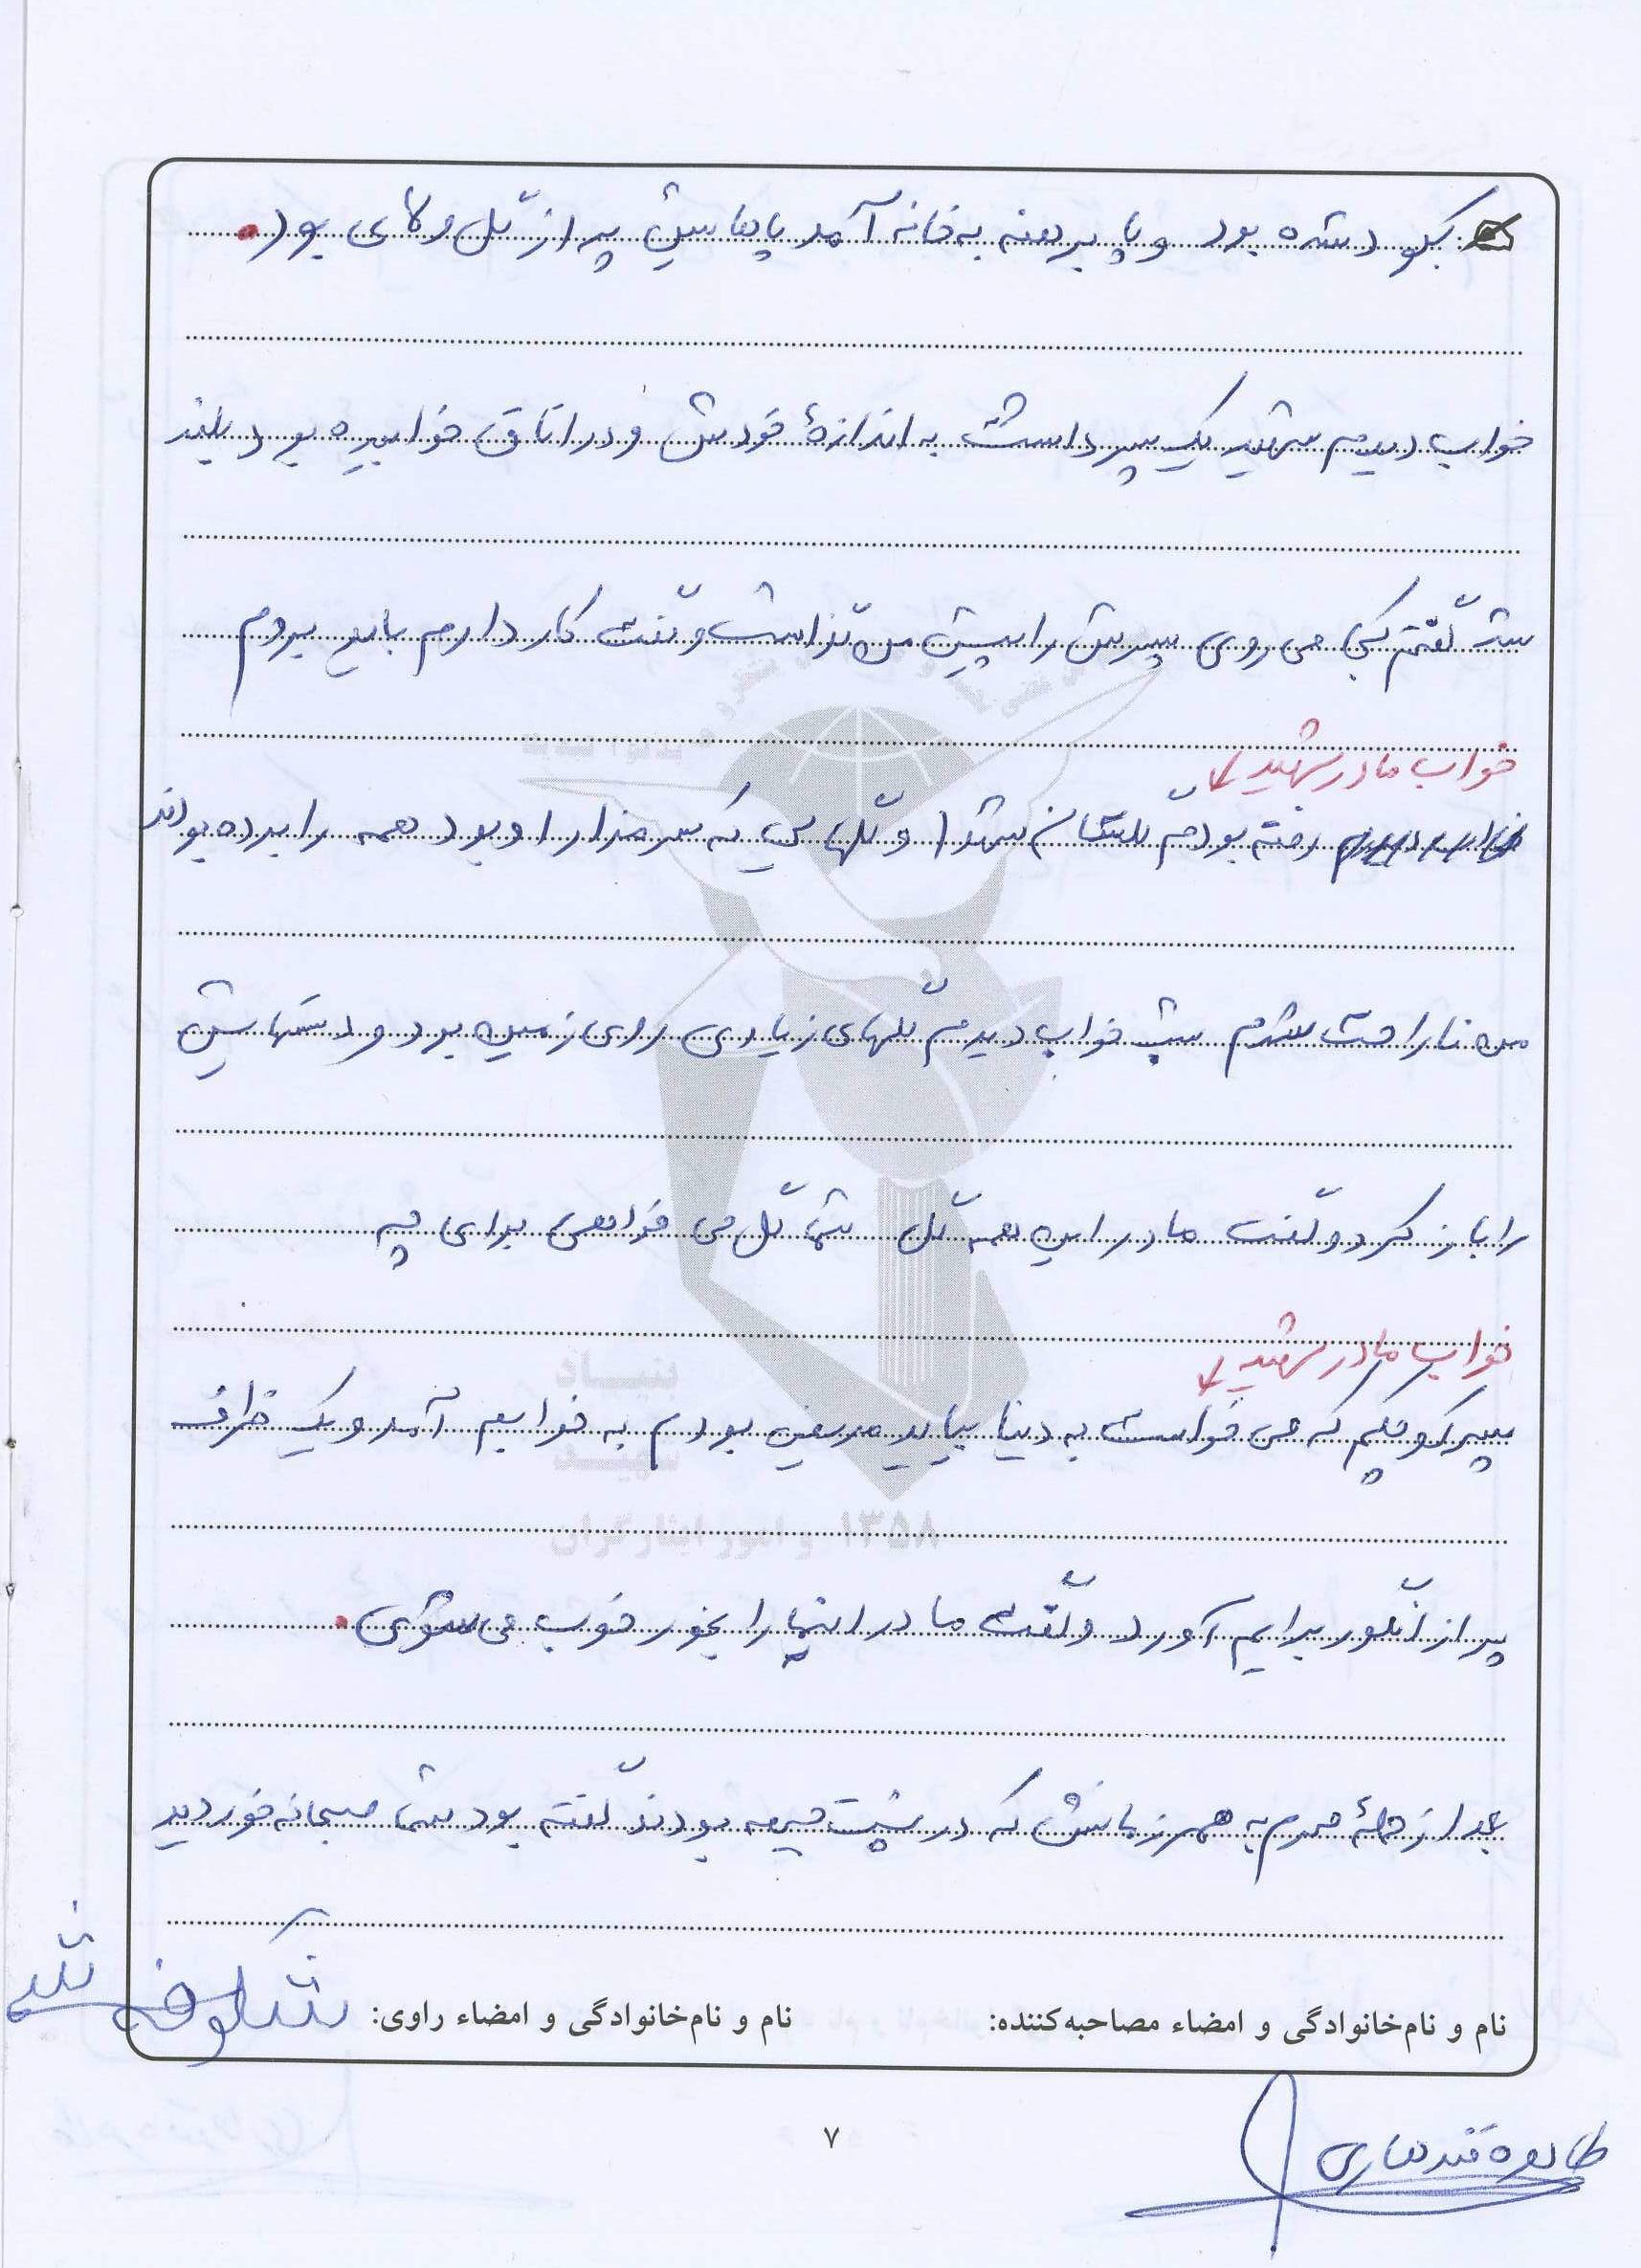 کبود شده بود و پا برهنه به خانه آمد پاهاش پر از گل و لای بود.
خواب دیدم شهید یک پسر داشت به اندازهٔ خودش و در اتاق خوابیده بود بلند
شد گفتم کجا می روی پسرش را پیش من گذاشت و گفت کار دارم باید بروم
خواب مادر شهید
رفته بودم گلستان شهدا و گلهایی که سر مزار او بود همه را برده بودند
من ناراحت شدم شب خواب دیدم گلهای زیادی روی زمین بود و دستهایش
را باز کرد و گفت مادر این همه گل شما گل می خواهی برای چه
خواب مادر شهید
پسر کوچکم که می خواست به دنیا بیاید مریض بودم به خوابم آمد و یک ظرف
پر از انگور برایم آورد و گفت مادر اینها را بخور خوب می شوی.
بعد از حملهٔ محرم به همرزمانش که در پشت خیمه بودند گفته بود شما صبحانه خوردید
نام و نام‌خانوادگی و امضاء مصاحبه‌کننده: نام و نام‌خانوادگی و امضاء راوی:
شکوفه
طاهره قندهاری
۷
بنیاد
شهید
و امور ایثارگران ۱۳۵۸